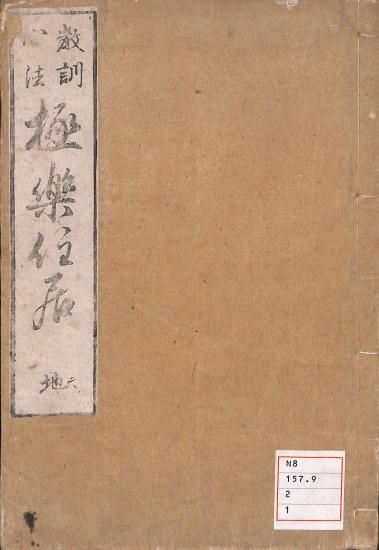 教訓
心法
極樂住居
天
地
N8
157.9
2
1